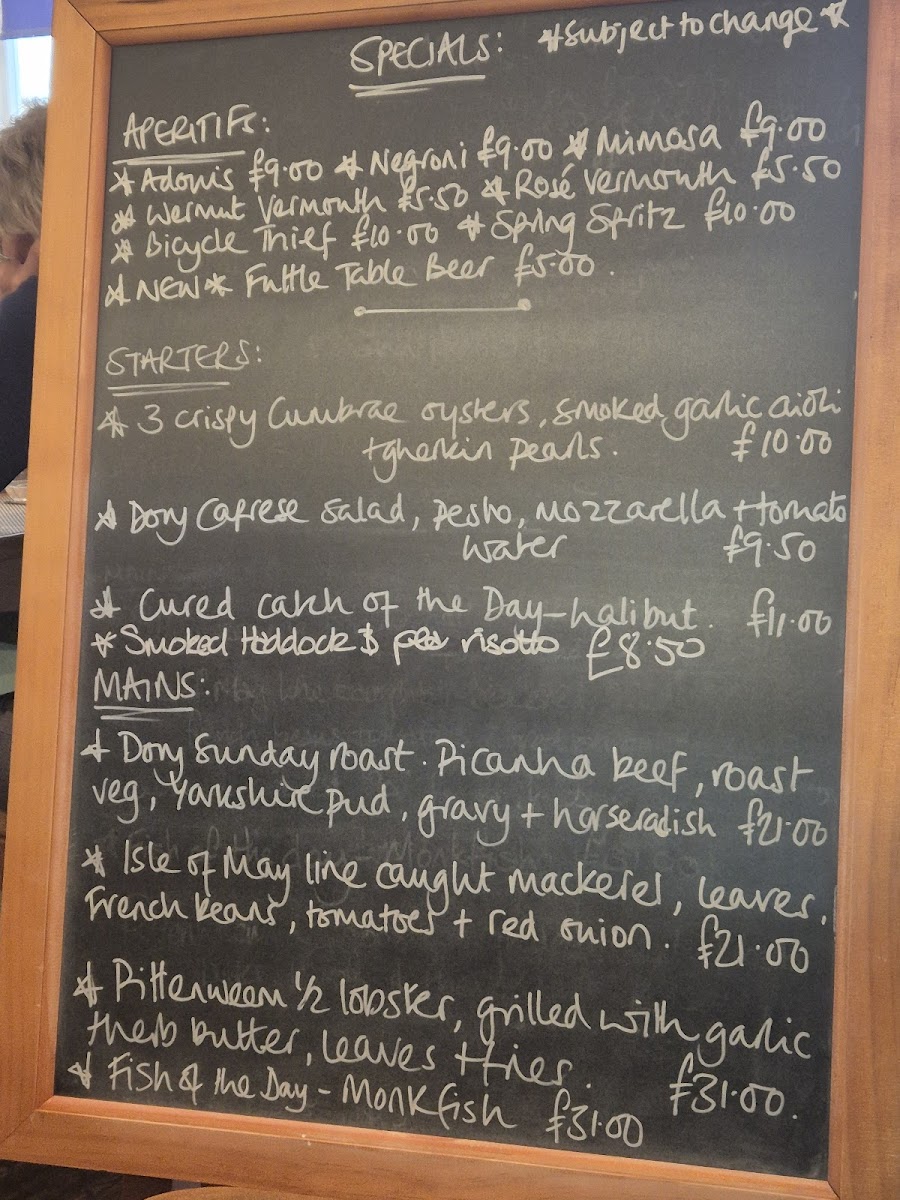 SPECIALS: *Subject to change*
APERITIFS:
* Adonis £9.00 * Negroni £9.00 * Mimosa £9.00
* Wermut Vermouth £5.50 * Rosé Vermouth £5.50
* Bicycle Thief £10.00 * Spring Spritz £10.00
* NEW * Futtle Table Beer £5.00.
STARTERS:
* 3 crispy Cumbrae oysters, smoked garlic aioli
+ gherkin pearls. £10.00
* Dory Caprese Salad, pesto, mozzarella + tomato
water £9.50
* Cured catch of the Day - halibut. £11.00
* Smoked Haddock & pea risotto £8.50
MAINS:
* Dory Sunday roast. Picanha beef, roast
veg, Yorkshire pud, gravy + horseradish £21.00
* Isle of May line caught mackerel, leaves,
French beans, tomatoes + red onion. £21.00
* Pittenweem 1/2 lobster, grilled with garlic
+ herb butter, leaves + fries. £31.00.
* Fish of the Day - Monkfish £31.00